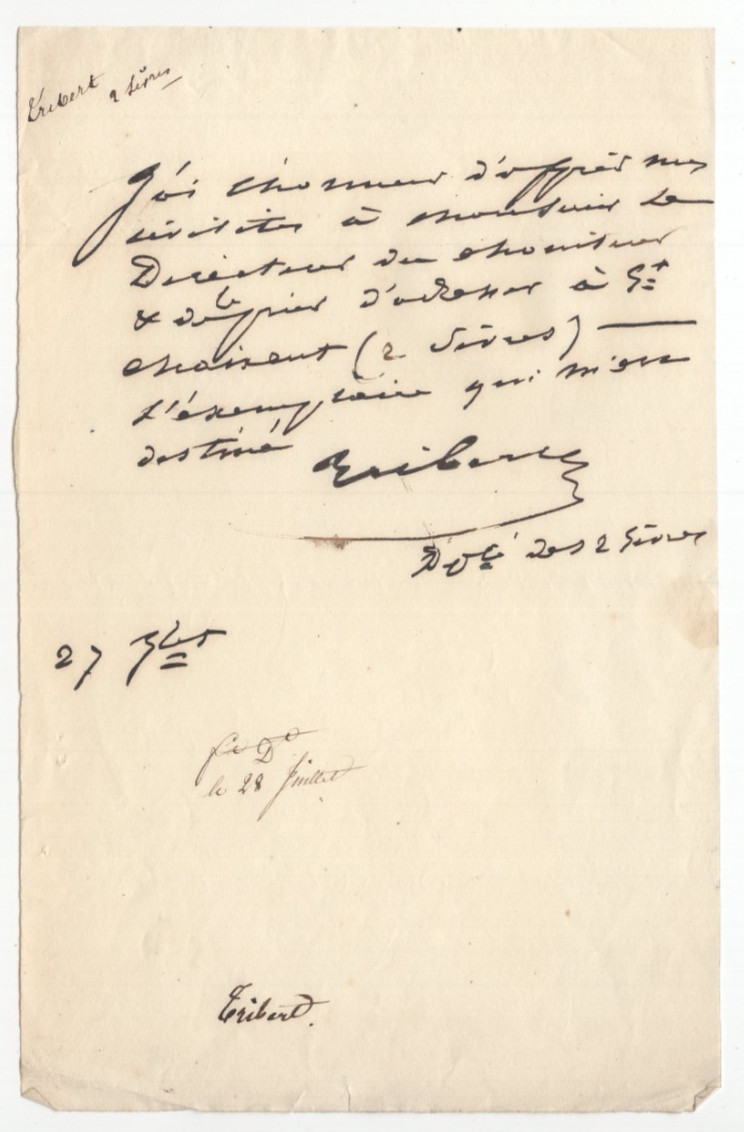 Tribert
2 Sèvres
J'ai l'honneur d'offrir mes
civilités à Monsieur le
Directeur du Moniteur
& de le prier d'adresser à St
Maixent (2 Sèvres) —
l'exemplaire qui m'est
destiné
Tribert
Dpté des 2 Sèvres
27 7bre
le 28 Juillet
Tribert.